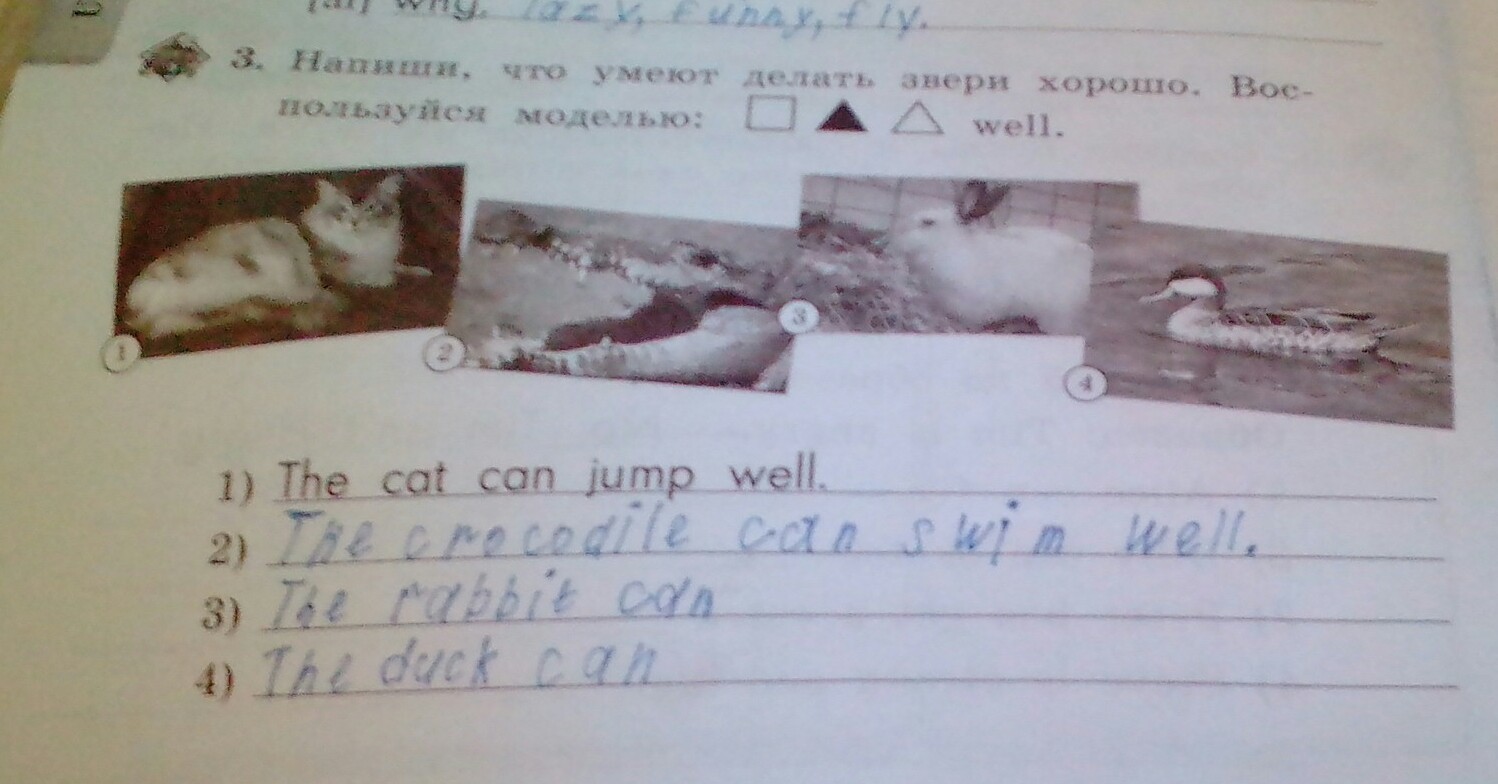 [ai] why, lazy, funny, fly.
3. Напиши, что умеют делать звери хорошо. Вос-
пользуйся моделью: □ ▲ △ well.
1
2
3
4
1) The cat can jump well.
2) The crocodile can swim well.
3) The rabbit can
4) The duck can